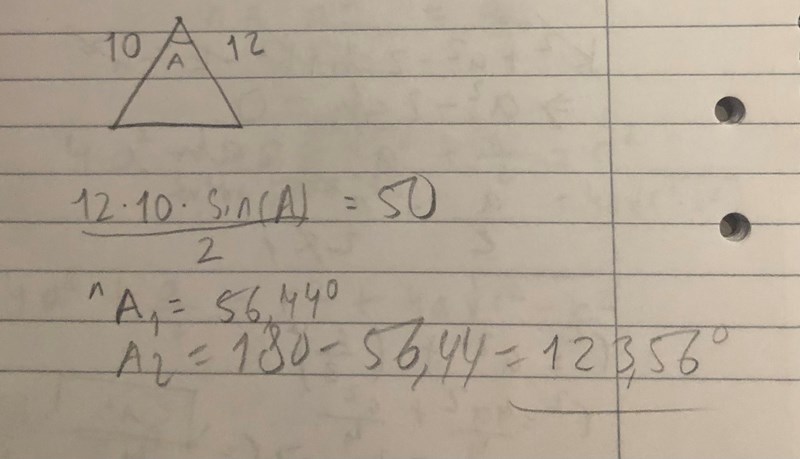 10 A 12
12·10·sin(A) = 50
2
^A₁ = 56,44°
A2 = 180 - 56,44 = 123,56°